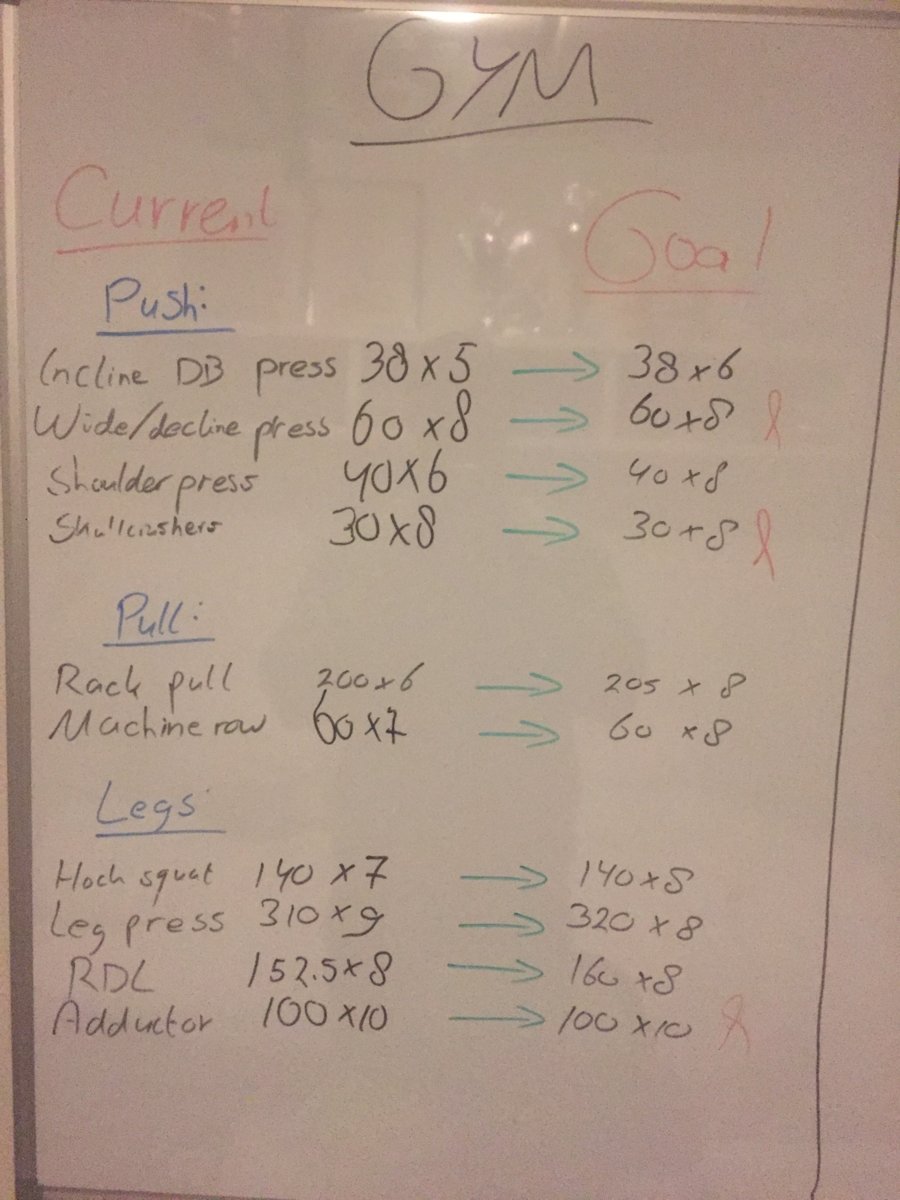 GYM
Current Goal
Push:
Incline DB press 38 x 5 → 38 x 6
Wide/decline press 60 x 8 → 60 x 8
Shoulder press 40 x 6 → 40 x 8
Skullcrushers 30 x 8 → 30 x 8
Pull:
Rack pull 200 x 6 → 205 x 8
Machine row 60 x 7 → 60 x 8
Legs
Hack squat 140 x 7 → 140 x 8
Leg press 310 x 9 → 320 x 8
RDL 152.5 x 8 → 160 x 8
Adductor 100 x 10 → 100 x 10